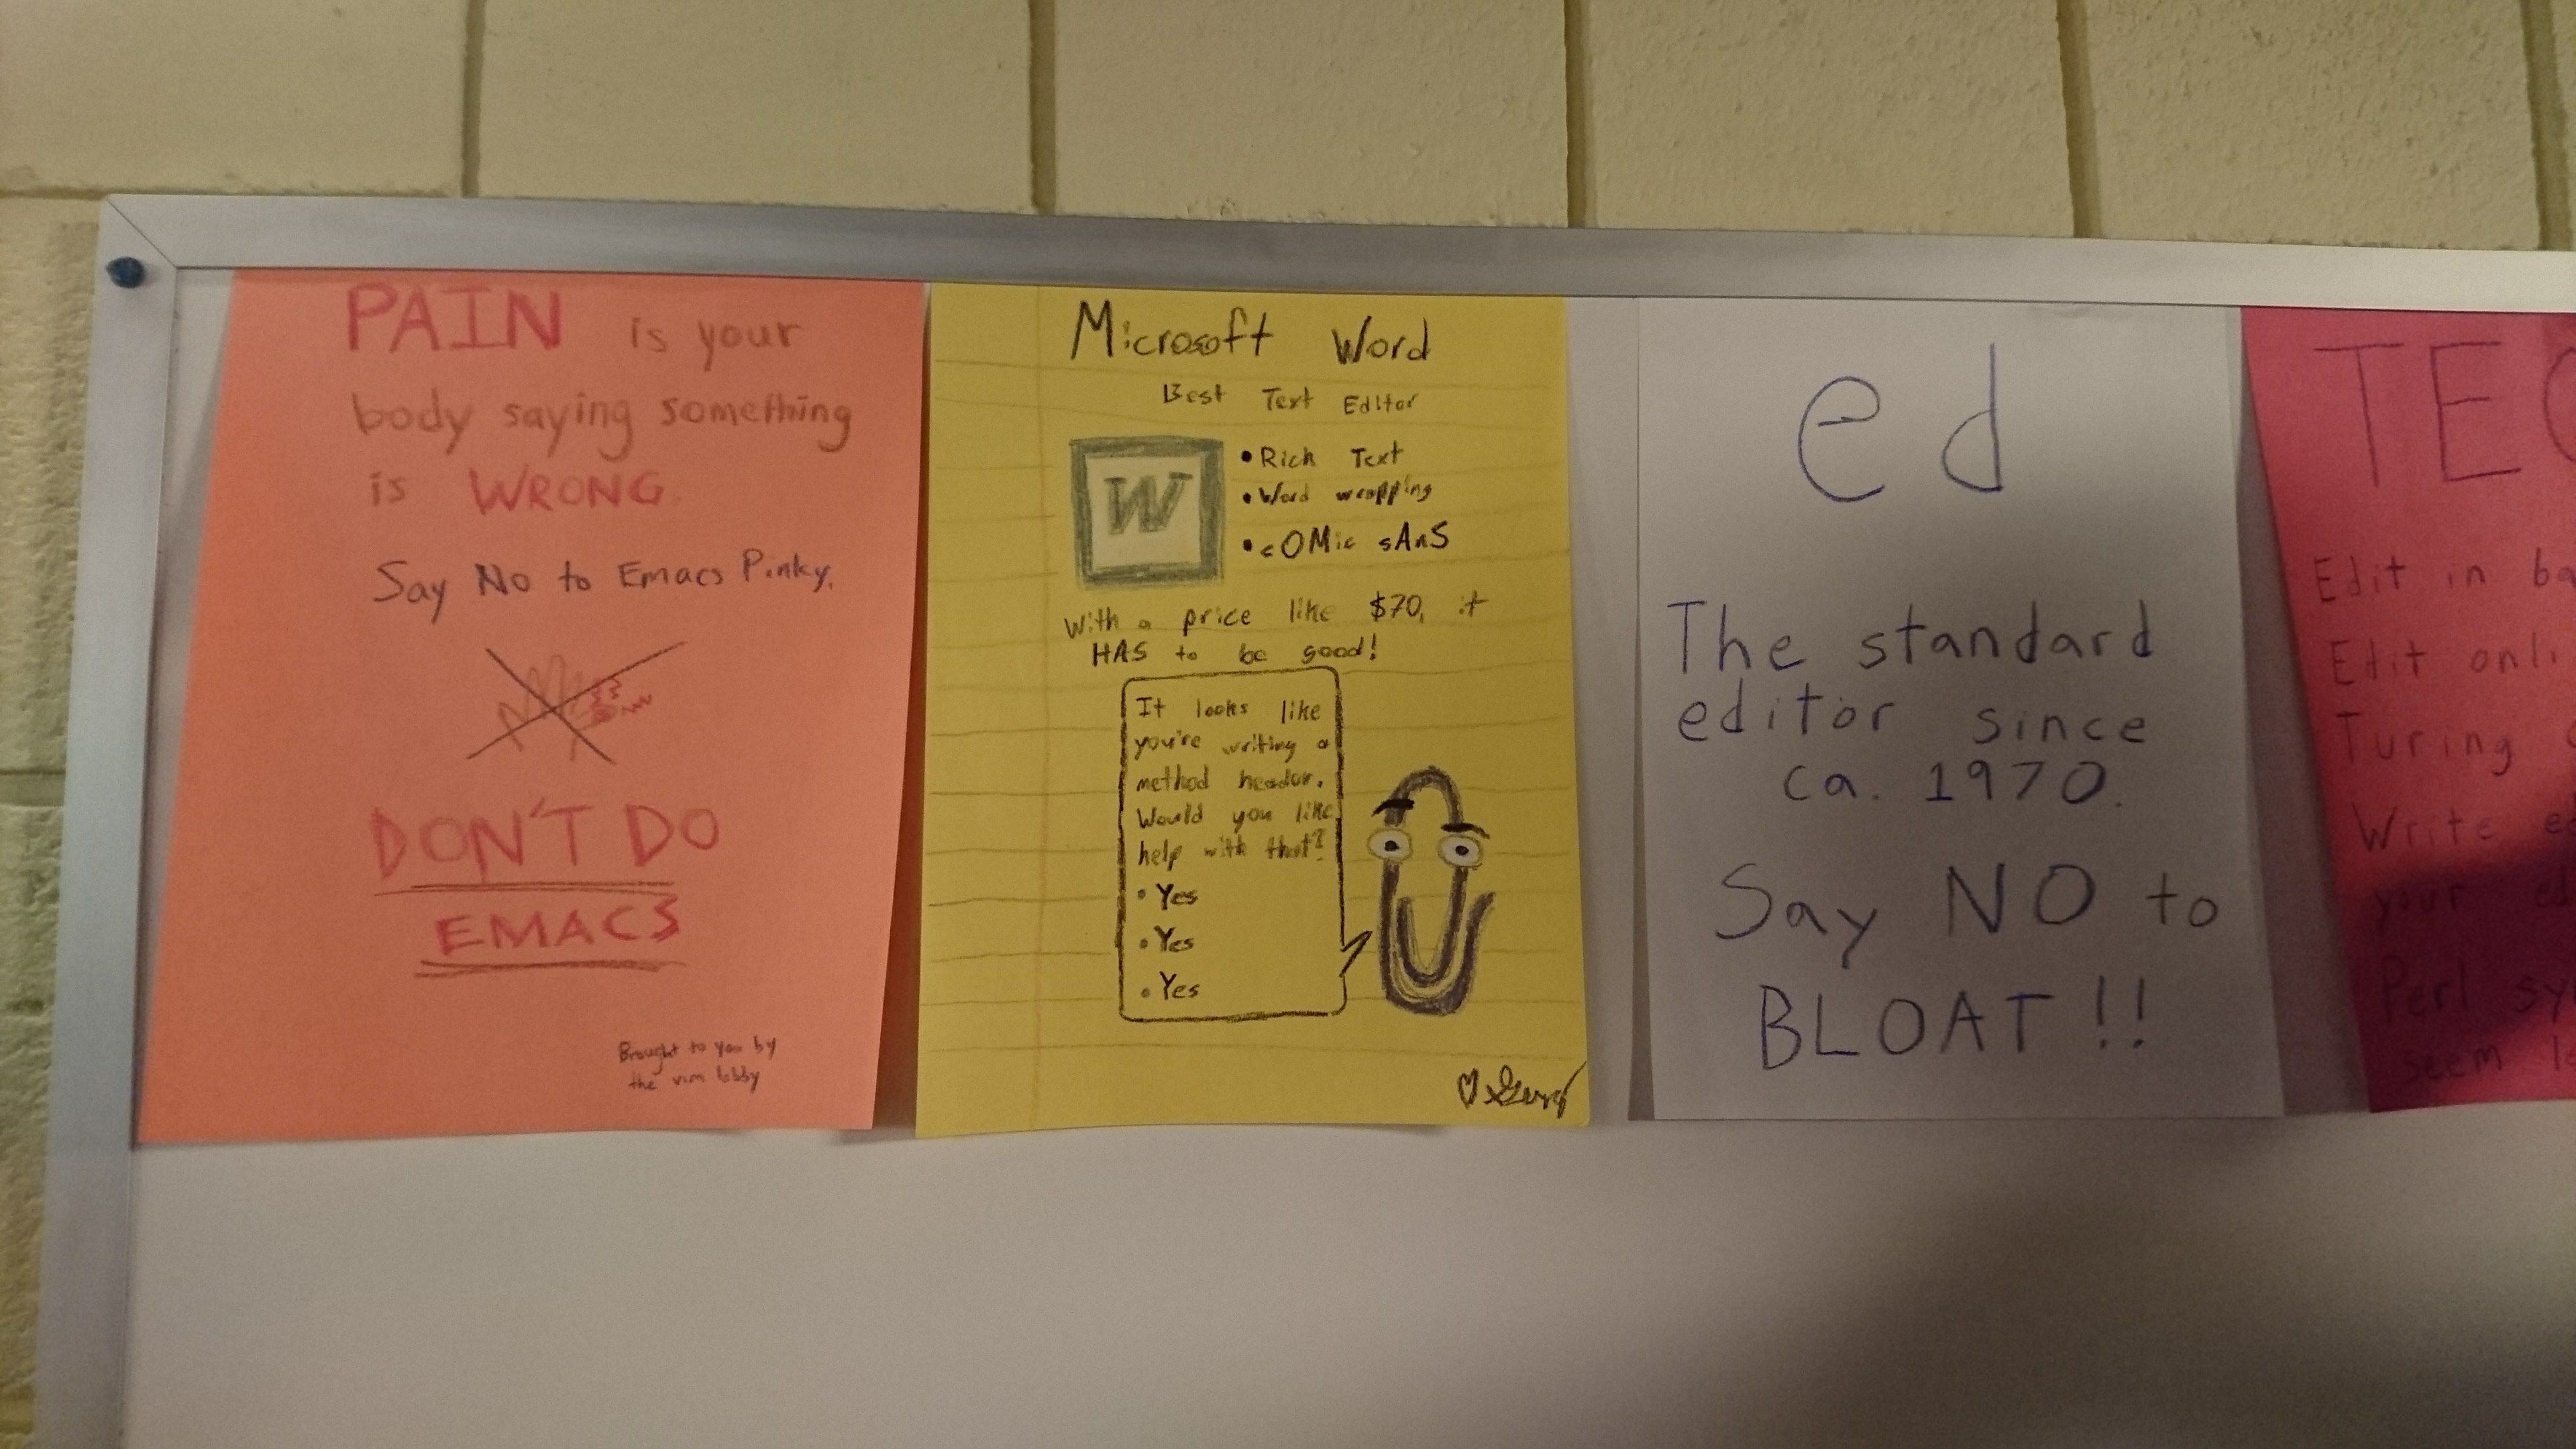 PAIN is your
body saying something
is WRONG.
Say No to Emacs Pinky.
DON'T DO
EMACS
Brought to you by
the vim lobby
Microsoft Word
Best Text Editor
W
• Rich Text
• Word wrapping
• cOMic sAnS
With a price like $70, it
HAS to be good!
It looks like
you're writing a
method header.
Would you like
help with that?
• Yes
• Yes
• Yes
ed
The standard
editor since
ca. 1970.
Say NO to
BLOAT!!
Edit in
Edit
Turing
Write
your
Perl
seem